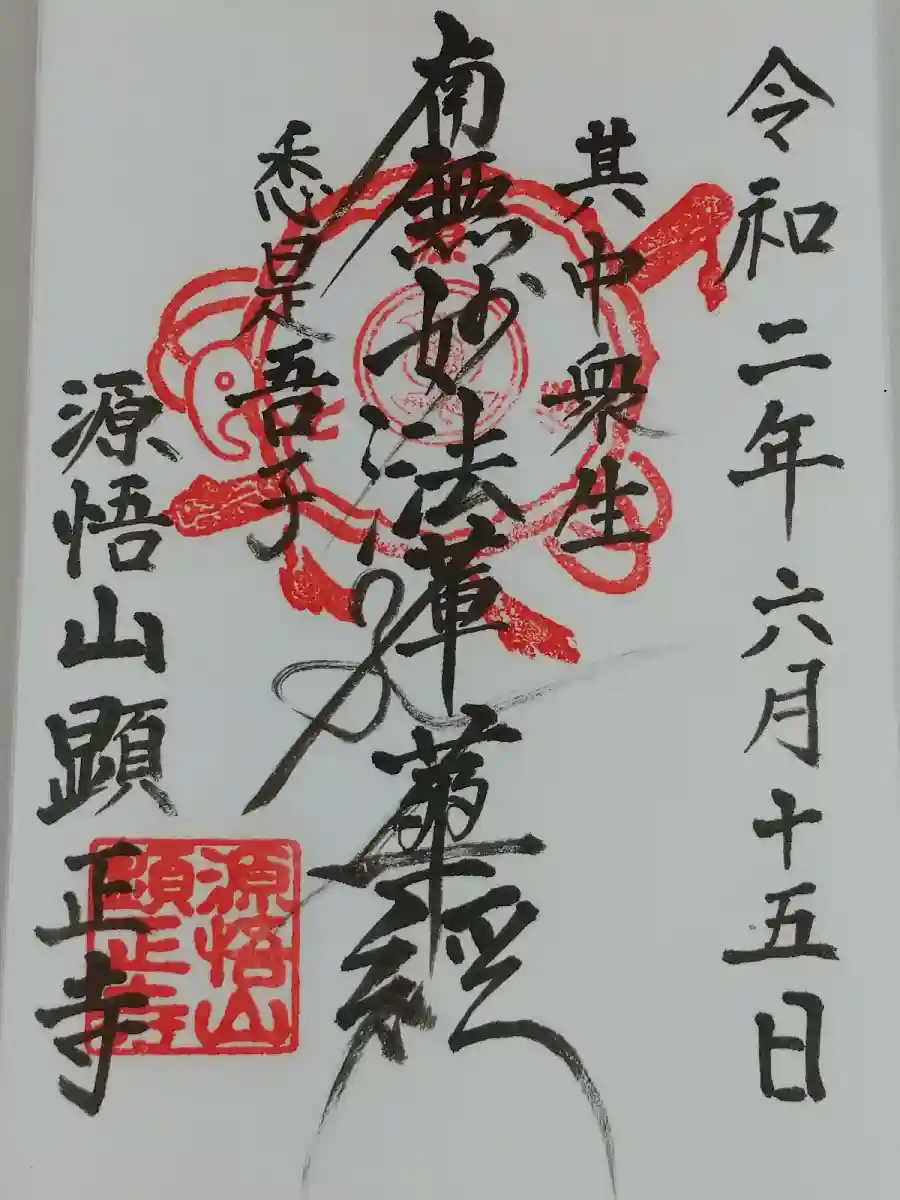 令和二年六月十五日
其中衆生
南無妙法蓮華經
悉是吾子
源悟山顕正寺
源悟山
顕正寺